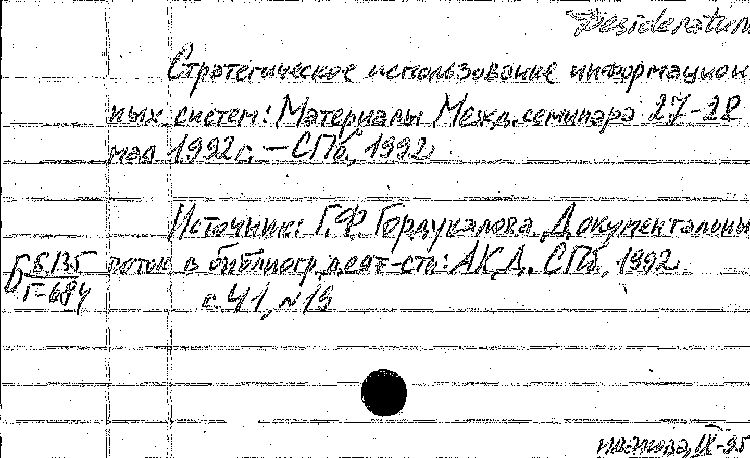 Desideratum
Стратегическое использование информацион
ных систем: Материалы Межд. семинара 27-28
мая 1992г. - СПб, 1992
Источник: Г.Ф. Гордукалова Документальны
поток в библиогр. деят-сть: АКД. СПб, 1992.
с. 41, №19
Б 5135
Г-684
IX-95